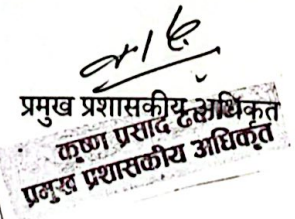 प्रमुख प्रशासकीय अधिकृत
कृष्ण प्रसाद
प्रमुख प्रशासकीय अधिकृत